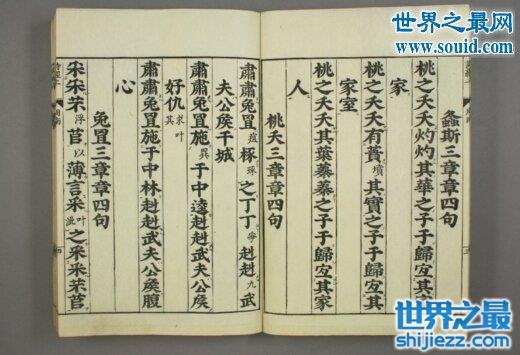 世界之最网
www.souid.com
螽斯三章章四句
桃之夭夭灼灼其華之子于歸宐其室
家
桃之夭夭有蕡墳其實之子于歸宐其
家室
桃之夭夭其葉蓁蓁之子于歸宐其家
人
桃夭三章章四句
肅肅兔罝疽椓琢之丁丁争赳赳九武
夫公矦干城
肅肅兔罝施異于中逵赳赳武夫公矦
好仇叶其求
肅肅兔罝施于中林赳赳武夫公矦腹
心
兔罝三章章四句
采采芣浮苢以薄言采叶泚之采采芣苢
世界之最
shijiezz.com